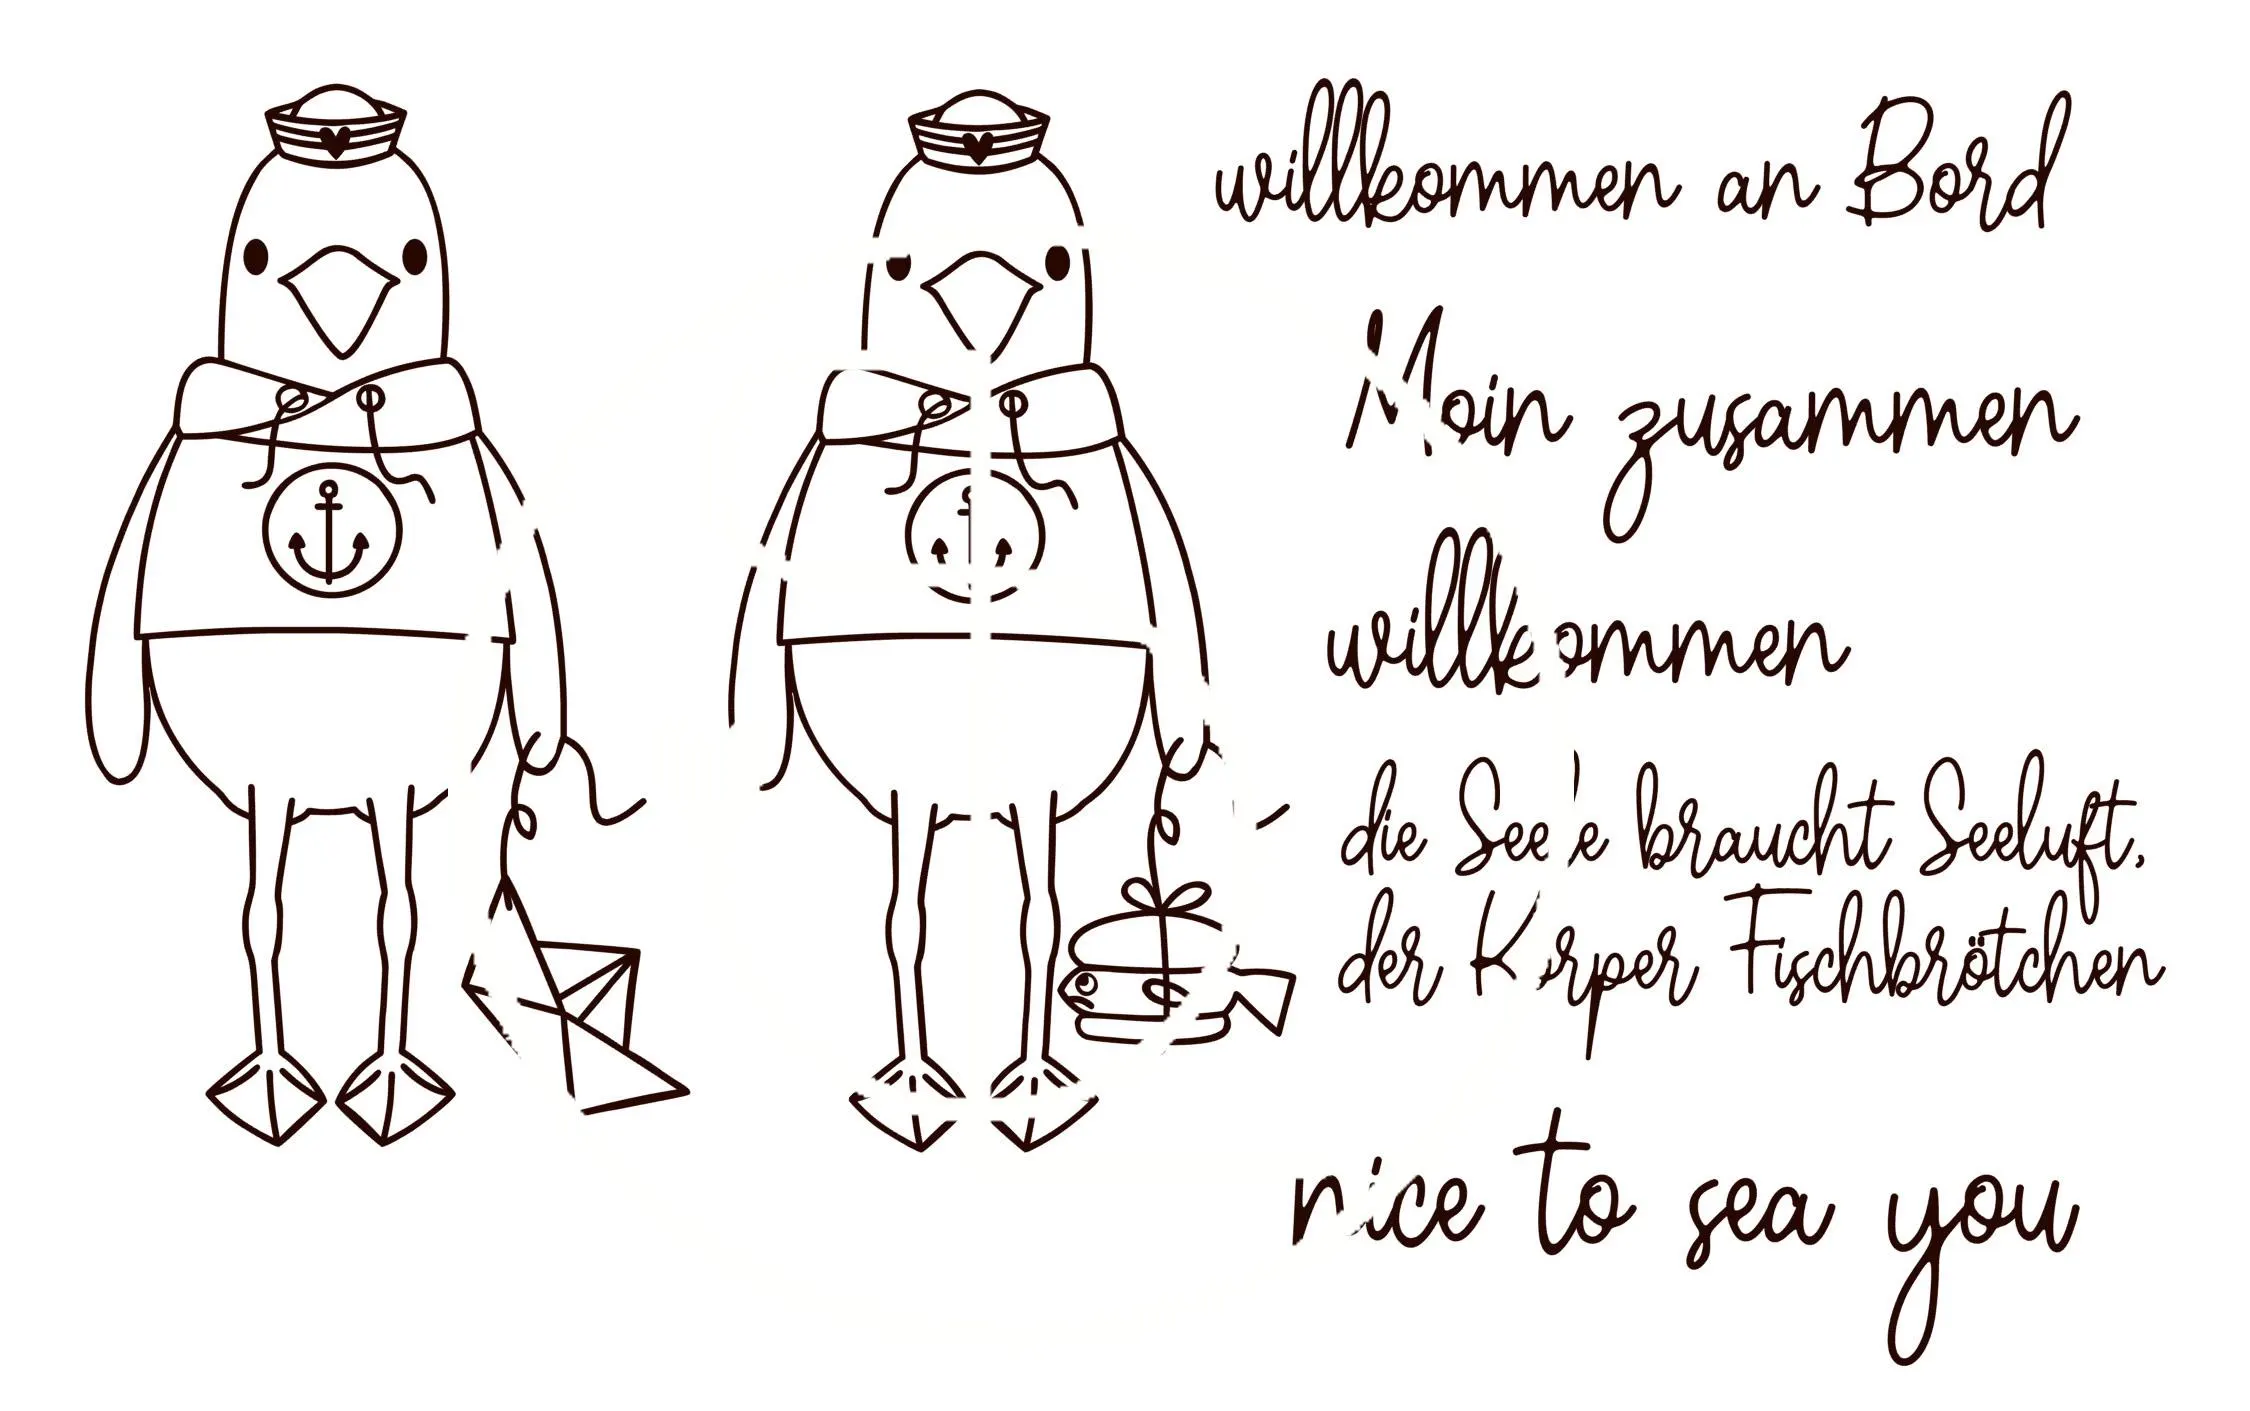 willkommen an Bord
Moin zusammen
willkommen
die Seele braucht Seeluft,
der Körper Fischbrötchen
nice to sea you